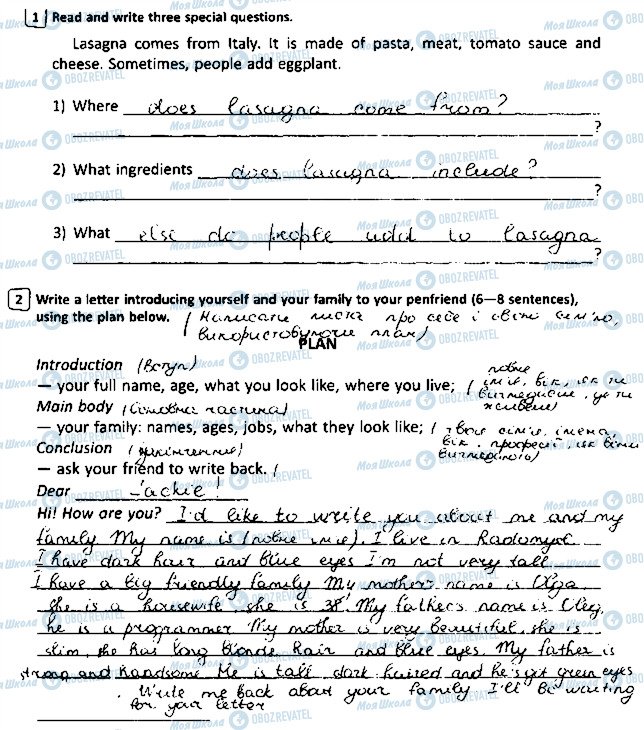 1 Read and write three special questions.
Lasagna comes from Italy. It is made of pasta, meat, tomato sauce and
cheese. Sometimes, people add eggplant.
1) Where does lasagna come from?
?
2) What ingredients does lasagna include?
?
3) What else do people add to lasagna
?
2 Write a letter introducing yourself and your family to your penfriend (6—8 sentences),
using the plan below. / Написати листа про себе і свою сім'ю,
використовуючи план/
PLAN
Introduction /Вступ/
повне
— your full name, age, what you look like, where you live; / ім'я, вік, як ти
виглядаєш, де ти
живеш/
Main body /Основна частина/
— your family: names, ages, jobs, what they look like; / твоя сім'я, імена,
вік, професії, як вони
виглядають/
Conclusion /закінчення/
— ask your friend to write back. /
Dear Jackie!
Hi! How are you? I'd like to write you about me and my
family My name is (повне ім'я). I live in Radomyshl.
I have dark hair and blue eyes I'm not very tall.
I have a big friendly family My mother's name is Olga
she is a housewife she is 38. My father's name is Oleg,
he is a programmer My mother is very beautiful, she is
slim, she has long blonde hair and blue eyes. My father is
strong and handsome He is tall dark haired and he's got green eyes
. Write me back about your family I'll be waiting
for your letter
Моя Школа OBOZREVATEL